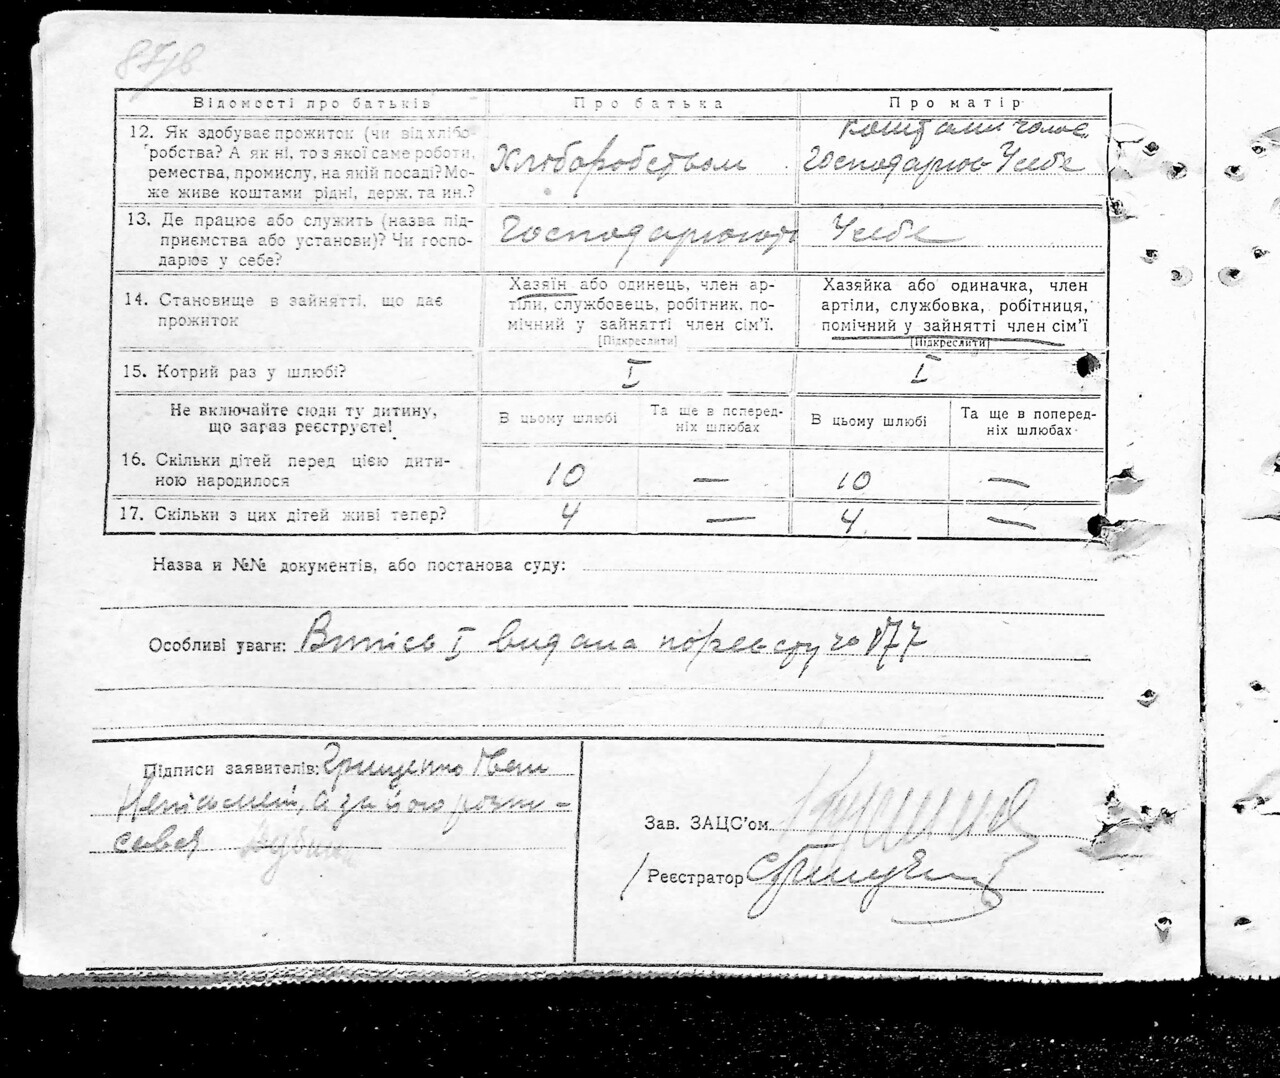 Відомості про батьків
Про батька
Про матір
12. Як здобуває прожиток (чи від хлібо-
робства? А як ні, то з якої саме роботи,
ремества, промислу, на якій посаді? Мо-
же живе коштами рідні, держ. та ин.?
Хліборобством
коштами голов.
Господарює Усебе
13. Де працює або служить (назва під-
приємства або установи)? Чи госпо-
дарює у себе?
Господарюють
Усебе
14. Становище в зайнятті, що дає
прожиток
Хазяїн або одинець, член ар-
тіли, службовець, робітник, по-
мічний у зайнятті член сім'ї.
[Підкреслити]
Хазяйка або одиначка, член
артіли, службовка, робітниця,
помічний у зайнятті член сім'ї
[Підкреслити]
15. Котрий раз у шлюбі?
I
I
Не включайте сюди ту дитину,
що зараз реєструєте!
В цьому шлюбі
Та ще в поперед-
ніх шлюбах
В цьому шлюбі
Та ще в поперед-
ніх шлюбах
16. Скільки дітей перед цією дити-
ною народилося
10
—
10
—
17. Скільки з цих дітей живі тепер?
4
—
4
—
Назва и №№ документів, або постанова суду:
Особливі уваги: Витись I видана пореєстру за №77
Підписи заявителів: Грищенко Іван
Неписьмений, а за його розпи-
савсв
Зав. ЗАЦС'ом
Реєстратор